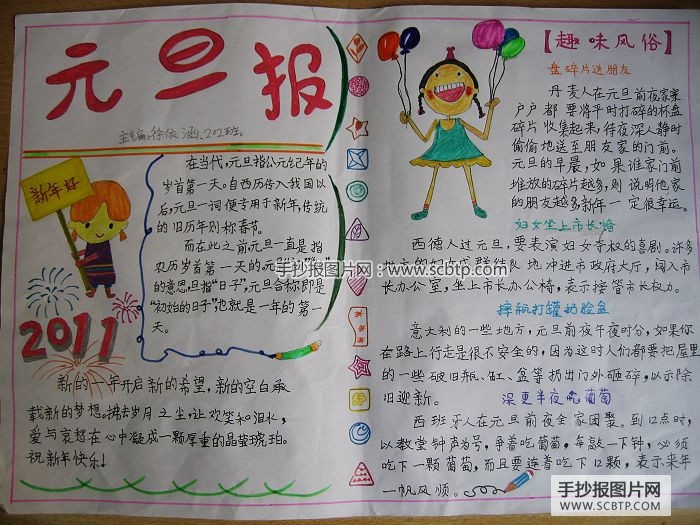 元旦报
主编:徐依涵 202班.
新年好
2011
在当代,元旦指公元纪年的
岁首第一天。自西历传入我国以
后,元旦一词便专用于新年,传统
的旧历年则称春节。
而在此之前元旦一直是指
农历岁首第一天的。元是
的意思,旦指“日子”,元旦合称即是
“初始的日子”也就是一年的第一
天。
新的一年开启新的希望,新的空白承
载新的梦想。拂去岁月之尘,让欢笑和泪水,
爱与哀愁在心中凝成一颗厚重的晶莹琥珀。
祝新年快乐!
【趣味风俗】
盘碎片送朋友
丹麦人在元旦前夜家家
户户都要将平时打碎的杯盘
碎片收集起来,待夜深人静时
偷偷地送至朋友家的门前。
元旦的早晨,如果谁家门前
堆放的碎片越多,则说明他家
的朋友越多新年一定很幸运。
妇女坐上市长椅
西德人过元旦,要表演妇女夺权的喜剧。许多
地方的妇女成群结队地冲进市政府大厅,闯入市
长办公室,坐上市长办公椅,表示接管市长权力。
摔瓶打罐扔脸盆
意大利的一些地方,元旦前夜午夜时分,如果你
在路上行走是很不安全的,因为这时人们都要把屋里
的一些破旧瓶、缸、盆等扔出门外砸碎,以示除
旧迎新。
深更半夜吃葡萄
西班牙人在元旦前夜全家团聚。到12点时,
以教堂钟声为号,争着吃葡萄,每敲一下钟,必须
吃下一颗葡萄,而且要连着吃下12颗,表示来年
一帆风顺。
手抄报图片网:www.scbtp.com
手抄报图片网
WWW.SCBTP.COM